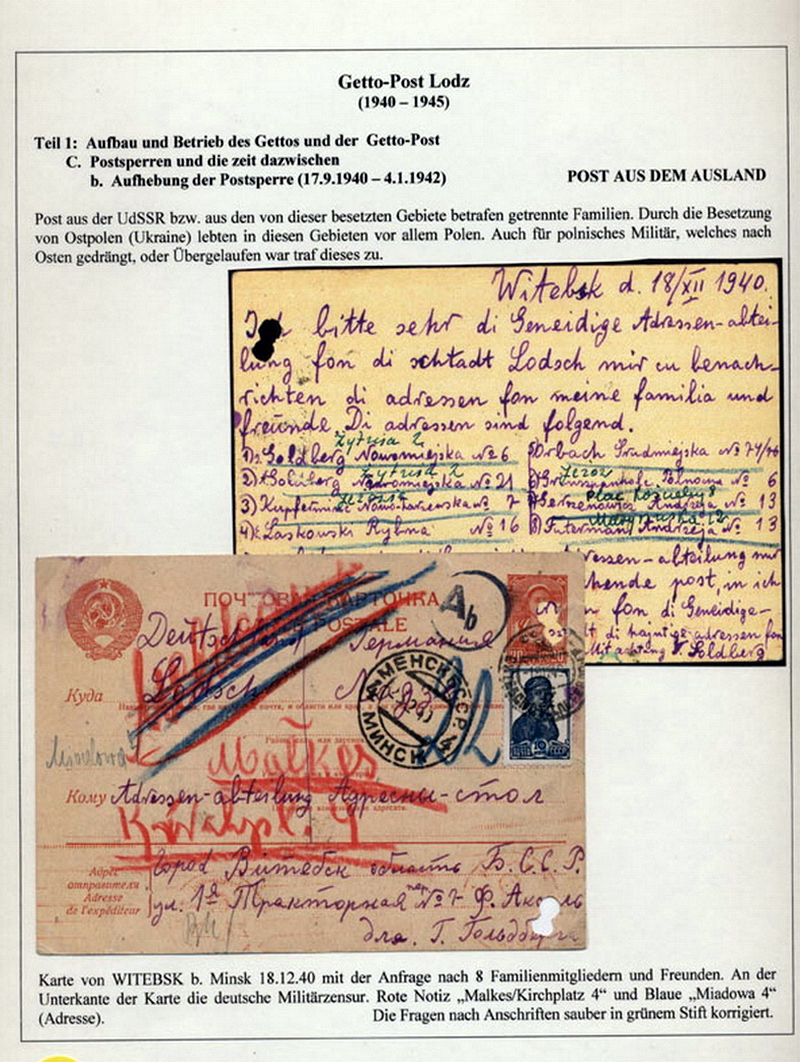 Getto-Post Lodz
(1940 – 1945)
Teil 1: Aufbau und Betrieb des Gettos und der Getto-Post
C. Postsperren und die zeit dazwischen
b. Aufhebung der Postsperre (17.9.1940 – 4.1.1942)
POST AUS DEM AUSLAND
Post aus der UdSSR bzw. aus den von dieser besetzten Gebiete betrafen getrennte Familien. Durch die Besetzung
von Ostpolen (Ukraine) lebten in diesen Gebieten vor allem Polen. Auch für polnisches Militär, welches nach
Osten gedrängt, oder Übergelaufen war traf dieses zu.
Witebsk d. 18/XII 1940.
Ich bitte sehr di Geneidige Adressen-abtei-
lung fon di schtadt Lodsch mir cu benach-
richten di adressen fon meine familia und
freunde. Di adressen sind folgend.
Żytnia 2
1) Goldberg Nowomiejska № 6
5) Orbach Srudmiejska № 74/76
2) Golberg Nowomiejska № 21
Północna № 6
3) Kupfermine № 7
Plac Kościelny 8
Gerszenowicz Andrzeja № 13
4) Laskowski Rybna № 16
8) Futerman Andrzeja № 13
Adressen-abteilung mir
post, in ich
fon di Geneidige-
di hajntige adressen fon
Mit achtung Goldberg
ПОЧТОВАЯ КАРТОЧКА
POSTALE
Ab
Deutschland Германия
Куда
Lodsch
КАМЕНСК БССР
МИНСК
22
ПОЧТА 10 СССР
Malkes
Кому Adressen-abteilung Адресный-стол
Kirchpl. 4
Адрес
отправителя
Adresse
de l'expéditeur
город Витебск область Б.С.С.Р.
ул. 1я Тракторная № 7
для Г. Гольдберга
Karte von WITEBSK b. Minsk 18.12.40 mit der Anfrage nach 8 Familienmitgliedern und Freunden. An der
Unterkante der Karte die deutsche Militärzensur. Rote Notiz „Malkes/Kirchplatz 4“ und Blaue „Miadowa 4“
(Adresse). Die Fragen nach Anschriften sauber in grünem Stift korrigiert.